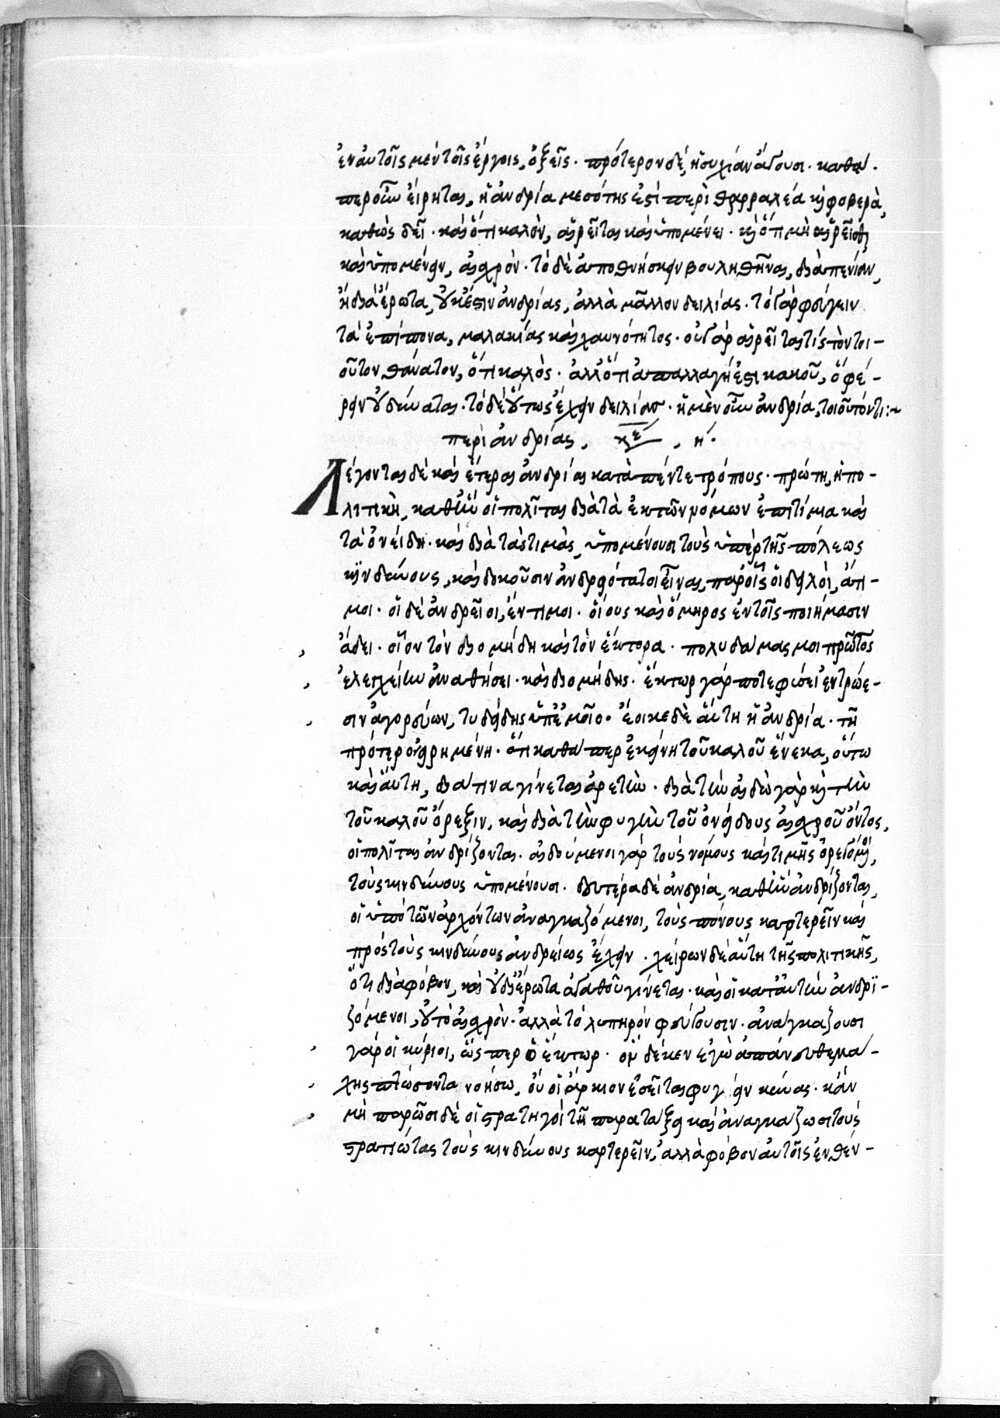 ἐν αὐτοῖς μὲν τοῖς ἔργοις, ὀξεῖς· πρότερον δὲ, ἡσυχίαν ἄγουσι· καθά·
περ οὖν εἴρηται, ἡ ἀνδρία μεσότης ἐστὶ περὶ θαρραλέα καὶ φοβερὰ,
καθὼς δεῖ· καὶ ὅτι καλὸν, αἱρεῖται καὶ ὑπομένει· καὶ ὅτι μὴ αἱρεῖσθαι
καὶ ὑπομένειν, αἰσχρόν· τὸ δὲ ἀποθνήσκειν βουληθῆναι, διὰ πενίαν,
ἢ διὰ ἔρωτα, οὐκ ἔστιν ἀνδρίας, ἀλλὰ μᾶλλον δειλίας· τὸ γὰρ φεύγειν
τὰ ἐπίπονα, μαλακίας καὶ χαυνότητος· οὐ γὰρ αἱρεῖταί τις τὸν τοι-
οῦτον θάνατον, ὅτι καλὸς· ἀλλ' ὅτι ἀπαλλαγή ἐστι κακοῦ, ὃ φέ-
ρειν οὐ δύναται· τὸ δὲ οὕτως ἔχειν δειλίας· ἡ μὲν οὖν ἀνδρία, τοιοῦτόν τι:~
περὶ ἀνδρίας, κεφ, η´·
Λέγονται δὲ καὶ ἕτεραι ἀνδρίαι κατὰ πέντε τρόπους· πρώτη, ἡ πο-
λιτικὴ, καθ' ἣν οἱ πολῖται διὰ τὰ ἐκ τῶν νόμων ἐπιτίμια καὶ
τὰ ὀνείδη· καὶ διὰ τὰς τιμὰς, ὑπομένουσι τοὺς ὑπὲρ τῆς πόλεως
κινδύνους, καὶ δοκοῦσιν ἀνδρειότατοι εἶναι, παρ' οἷς οἱ δειλοὶ, ἄτι-
μοι· οἱ δὲ ἀνδρεῖοι, ἔντιμοι· οἵους καὶ ὅμηρος ἐν τοῖς ποιήμασιν
ᾄδει· οἷον τὸν διομήδη καὶ τὸν ἕκτορα· πολυδάμας μοι πρῶτος
ἐλεγχείην ἀναθήσει· καὶ διομήδης· ἕκτωρ γάρ ποτε φήσει ἐν τρώε-
σιν ἀγορεύων, τυδείδης ὑπ' ἐμοῖο· ἔοικε δὲ αὕτη ἡ ἀνδρία· τῇ
πρότερον εἰρημένῃ· ὅτι καθάπερ ἐκείνη τοῦ καλοῦ ἕνεκα, οὕτω
καὶ αὕτη, διά τινα γίνεται ἀρετὴν· διὰ τὴν αἰδὼ γὰρ καὶ τὴν
τοῦ καλοῦ ὄρεξιν, καὶ διὰ τὴν φυγὴν τοῦ ὀνείδους αἰσχροῦ ὄντος,
οἱ πολῖται ἀνδρίζονται· αἰδούμενοι γὰρ τοὺς νόμους καὶ τιμῆς ὀρεγόμενοι,
τοὺς κινδύνους ὑπομένουσι· δευτέρα δὲ ἀνδρία, καθ' ἣν ἀνδρίζονται,
οἱ ὑπὸ τῶν ἀρχόντων ἀναγκαζόμενοι, τοὺς πόνους καρτερεῖν καὶ
πρὸς τοὺς κινδύνους ἀνδρείως ἔχειν· χείρων δὲ αὕτη τῆς πολιτικῆς,
ὅτι διὰ φόβον, καὶ οὐ δι' ἔρωτα ἀγαθοῦ γίνεται· καὶ οἱ κατ' αὐτὴν ἀνδρι-
ζόμενοι, οὐ τὸ αἰσχρὸν· ἀλλὰ τὸ λυπηρὸν φεύγουσιν· ἀναγκάζουσι
γὰρ οἱ κύριοι, ὥσπερ ὁ ἕκτωρ· ὃν δέ κεν ἐγὼ ἀπάνευθε μά-
χης πτώσοντα νοήσω, οὔ οἱ ἄρκιον ἐσεῖται φυγέειν κύνας· κἂν
μὴ παρῶσι δὲ οἱ στρατηγοὶ τῇ παρατάξει καὶ ἀναγκάζωσι τοὺς
στρατιώτας τοὺς κινδύνους καρτερεῖν, ἀλλὰ φόβον αὐτοῖς ἐνθέν-